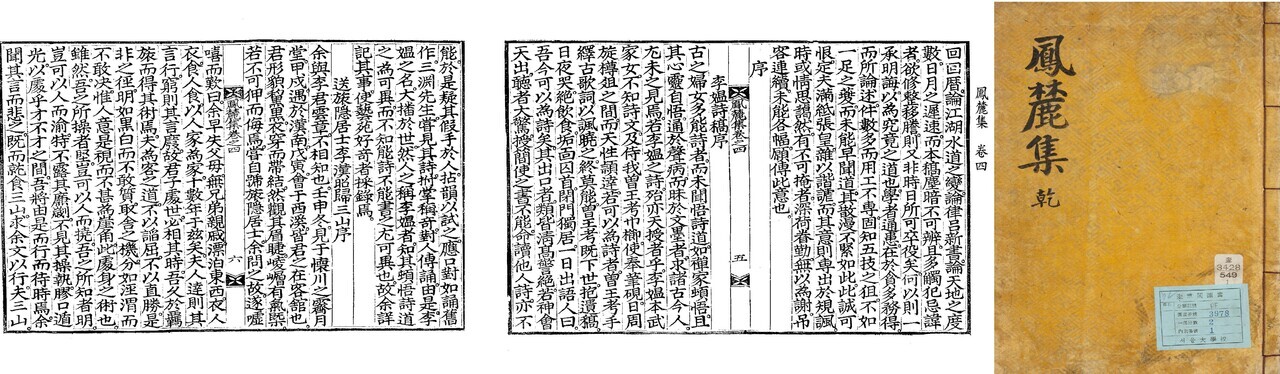 鳳麓集
乾
奎
3428
549
서울大學校
鳳麓集 卷四
回回曆論江湖水道之變論律呂新書論天地之度
數日月之遲速而本稿塵暗不可辨且多觸犯忌諱
者欲修整移謄則又非時日所可卒役夫何以則一
承明誨以為究竟之道也學者通患在於貪多務得
而所論述件數多而用工不專固知五技之狙不如
一足之夔而未能早聞道其散漫不緊如此此誠可
恨是夫滿紙張皇雖以諧謔而其意則專出於規諷
時或情思藹然有不可掩者深荷眷勤無以為謝吊
客連續未能各幅願傳此意也
序
李媼詩稿序
古之婦女多能詩者而未聞悟詩道如禪家頓悟且
鳳麓集卷之四 五
其心靈自悟通於聲病而昧於文墨者求諸古今人
尤未之見焉若李媼之詩殆亦天授者乎李媼本武
家女不知詩文及侍我曾王考巾櫛使奉筆硯日周
旋樽俎之間而天性穎達若可以為詩者曾王考手
繹古歌詞以諷聽之終莫能曾王考既下世抱遺稿
日夜哭絶飲食垢面囚首閉門獨居一日出語人曰
吾今可以為詩矣其出口者類皆淸高警絶若神會
天出聽者大驚授簡使之書不能命讀他人詩亦不
能於是疑其假手於人拈韻以試之應口對如誦舊
作三淵先生嘗見其詩抃掌稱奇對人傳誦由是李
媼之名大播於世然人之稱李媼者知其頓悟詩道
之為可異而不知能詩不能書之尤可異也故余詳
記其事俾藝苑好奇者採錄焉
送旅隱居士李潢韶歸三山序
余與李君雲章不相知也壬申冬見于懷川之霽月
堂甲戌遇於漢南戊寅會于西溪皆君之在客館也
君形貌癯黑衣穿而帶結然觀其有氣桀
若不可狎而侮焉嘗自號旅隱居士余問之故遂噓
鳳麓集卷之四 六
嘻而歎曰余早失父母無兄弟親戚漂泊東西衣人
衣食人食以人家為家十數年于玆矣夫人達則其
言行窮則其言廢故君子處世必相其時吾久於羈
旅而得其術焉夫為客之道不以諂屈不以直勝是
非之徑明如黑白而不敢質取舍之機分如涇渭而
不敢決惟人意是視而不甚為崖甫此處身之術也
雖然吾之所操者堅豈可以人而撓吾之所知者明
豈可以人而渝特不露其廉劌不見其操執膠口遁
光以處乎才不才之間吾將由是而行而待時焉余
聞其言而悲之既而就食三山求余文以行夫三山